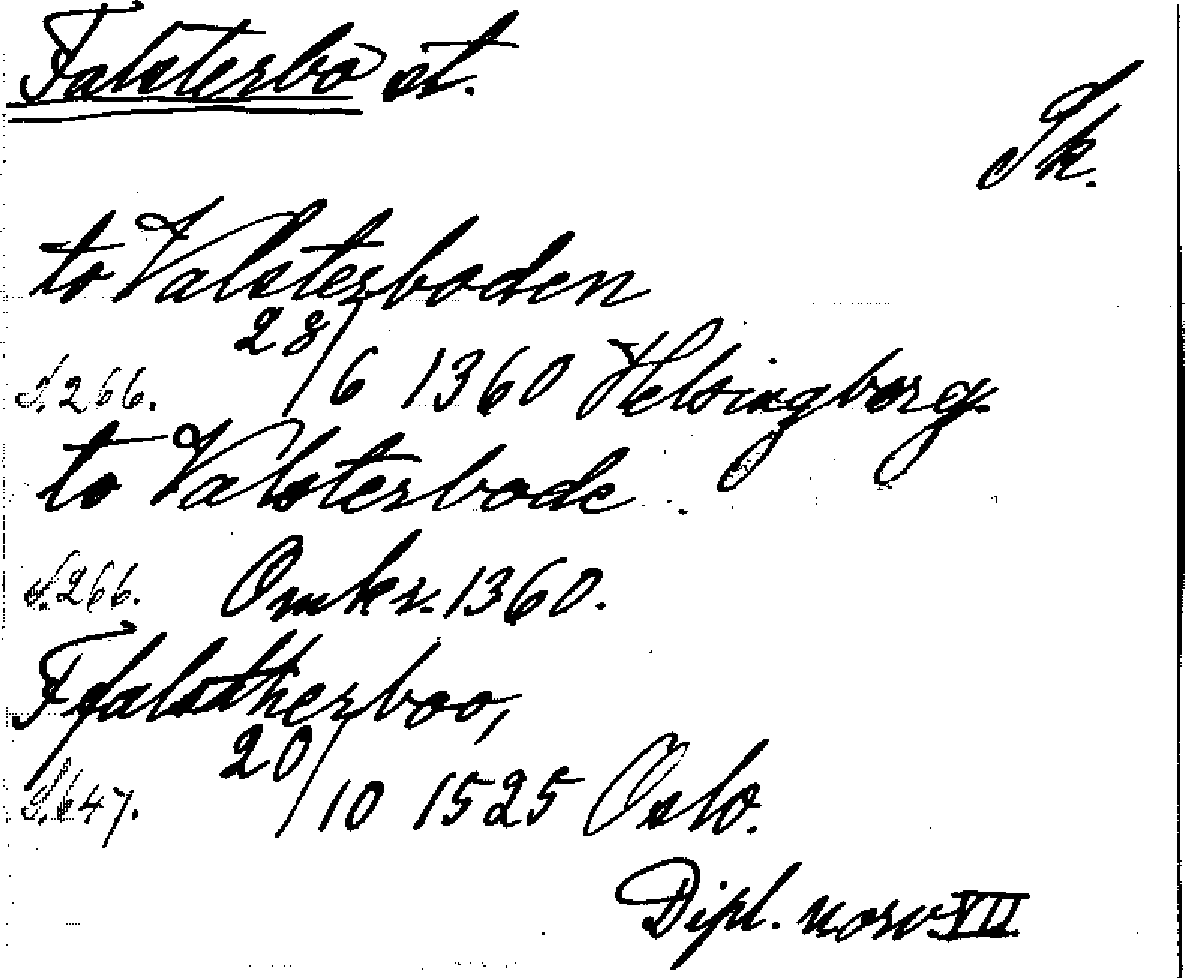 Falsterbo st.
Sk.
to Valsterboden
S. 266. 28/6 1360 Helsingborg.
to Valsterbode.
S. 266. Omkr. 1360.
Ffalstherboo,
S. 647. 20/10 1525 Oslo.
Dipl. norv. VII